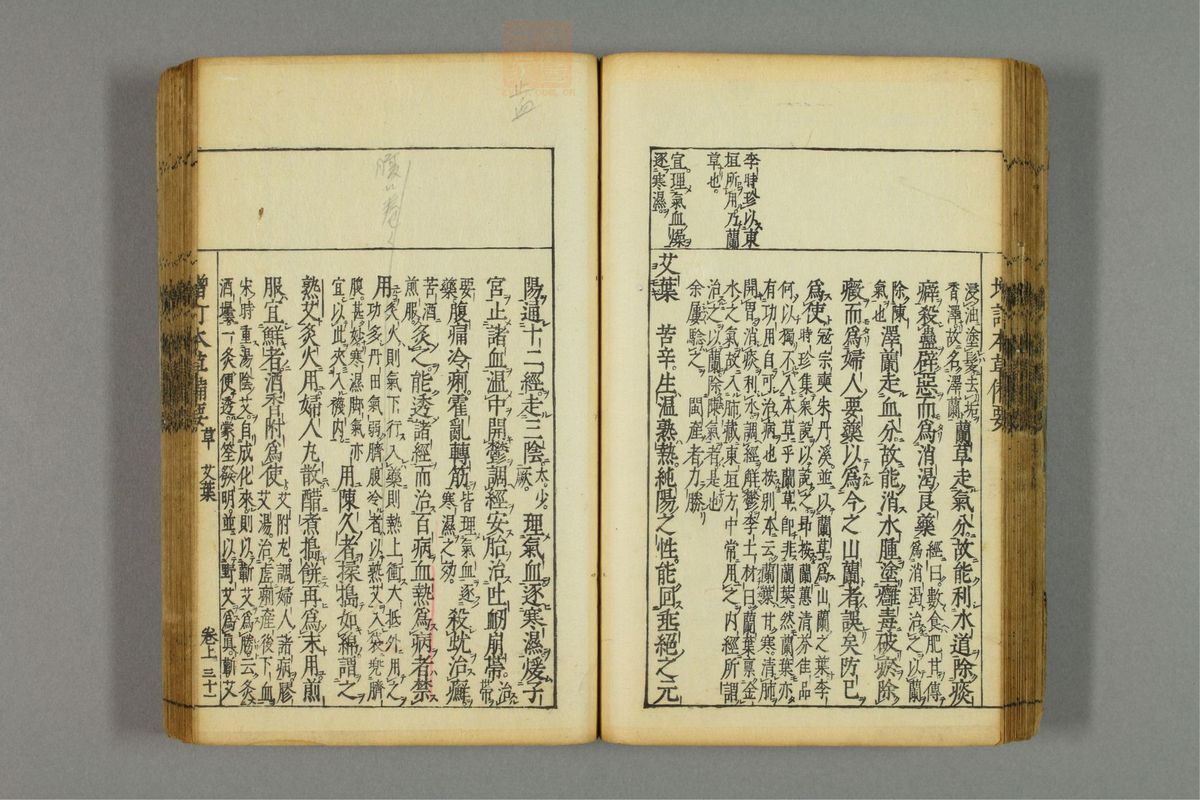 增訂本草備要
李時珍以東
垣所用乃蘭
草也。
宜理氣血燥
逐寒濕。
浸油塗髮去垢
香澤故名澤蘭
蘭草走氣分故能利水道除痰
癖殺蟲辟惡而爲消渴良藥
經曰數食肥甘傳
爲消渴治之以蘭
除陳
氣也
澤蘭走血分故能消水腫塗癰毒破瘀除
癥而爲婦人要藥以爲今之山蘭者誤矣防已
爲使
寇宗奭朱丹溪並以蘭草爲山蘭之葉李
時珍集衆說以訟之昻按蘭蕙清芬佳品
何以獨不入本草乎蘭草卽非蘭葉然蘭葉亦
有功用自可治病也按別本云蘭葉甘寒清肺
開胃消痰利水調經解鬱李士材曰蘭葉稟金
水之氣故入肺藏東垣方中常用之內經所謂
治之以蘭除陳氣者是也
余屢驗之 閩產者力勝
艾葉 苦辛。生温熟熱。純陽之性。能回垂絕之元
止血
陽。通十二經。走三陰
太。少。
厥。
理氣血。逐寒濕。煖子
宮。止諸血。温中開鬱。調經安胎。治吐衄崩帶。
治帶
要藥
腹痛冷痢。霍亂轉筋
皆理氣血逐
寒濕之効。
殺蚘治癬。
苦酒
煎服
灸之能透諸經而治百病。血熱爲病者禁
用
灸火則氣下行入藥則熱上衝大抵外用之
功多丹田氣弱臍腹冷者以熟艾入袋兜臍
腹甚妙寒濕脚氣亦
宜以此夾入襪內
用陳久者揉搗如綿謂之
熟艾灸火用婦人丸散醋煮搗餅再爲末用煎
服宜鮮者酒香附爲使
艾附丸調婦人諸病膠
艾湯治虛痢產後下血
宋時重湯陰艾自成化來則以蘄艾爲勝云灸
酒壜一灸便透蒙筌發明並以野艾爲真蘄艾
增訂本草備要 草 艾葉 卷上 三十